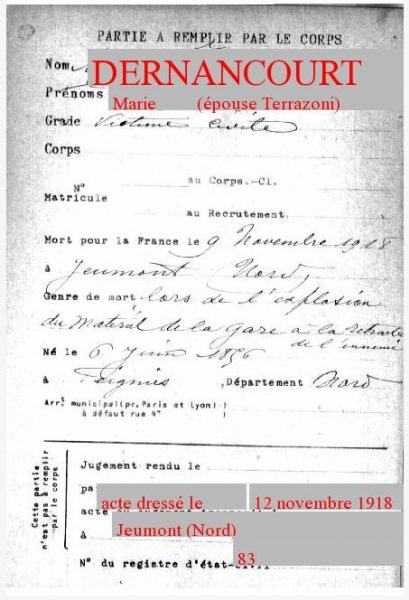 PARTIE A REMPLIR PAR LE CORPS
Nom
DERNANCOURT
Prénoms
Marie (épouse Terrazoni)
Grade Victime civile
Corps
N° au Corps.-Cl.
Matricule
au Recrutement
Mort pour la France le 9 Novembre 1918
à Jeumont Nord,
Genre de mort lors de l'explosion
du matériel de la gare à la retraite
de l'ennemi
Né le 6 Juin 1856
à Feignies, Département Nord
Arrt municipal (pr. Paris et Lyon)
à défaut rue N°
Cette partie
n'est pas à remplir
par le corps
Jugement rendu le
pa
acte dressé le 12 novembre 1918
acte
à Jeumont (Nord)
83
N° du registre d'état-civil